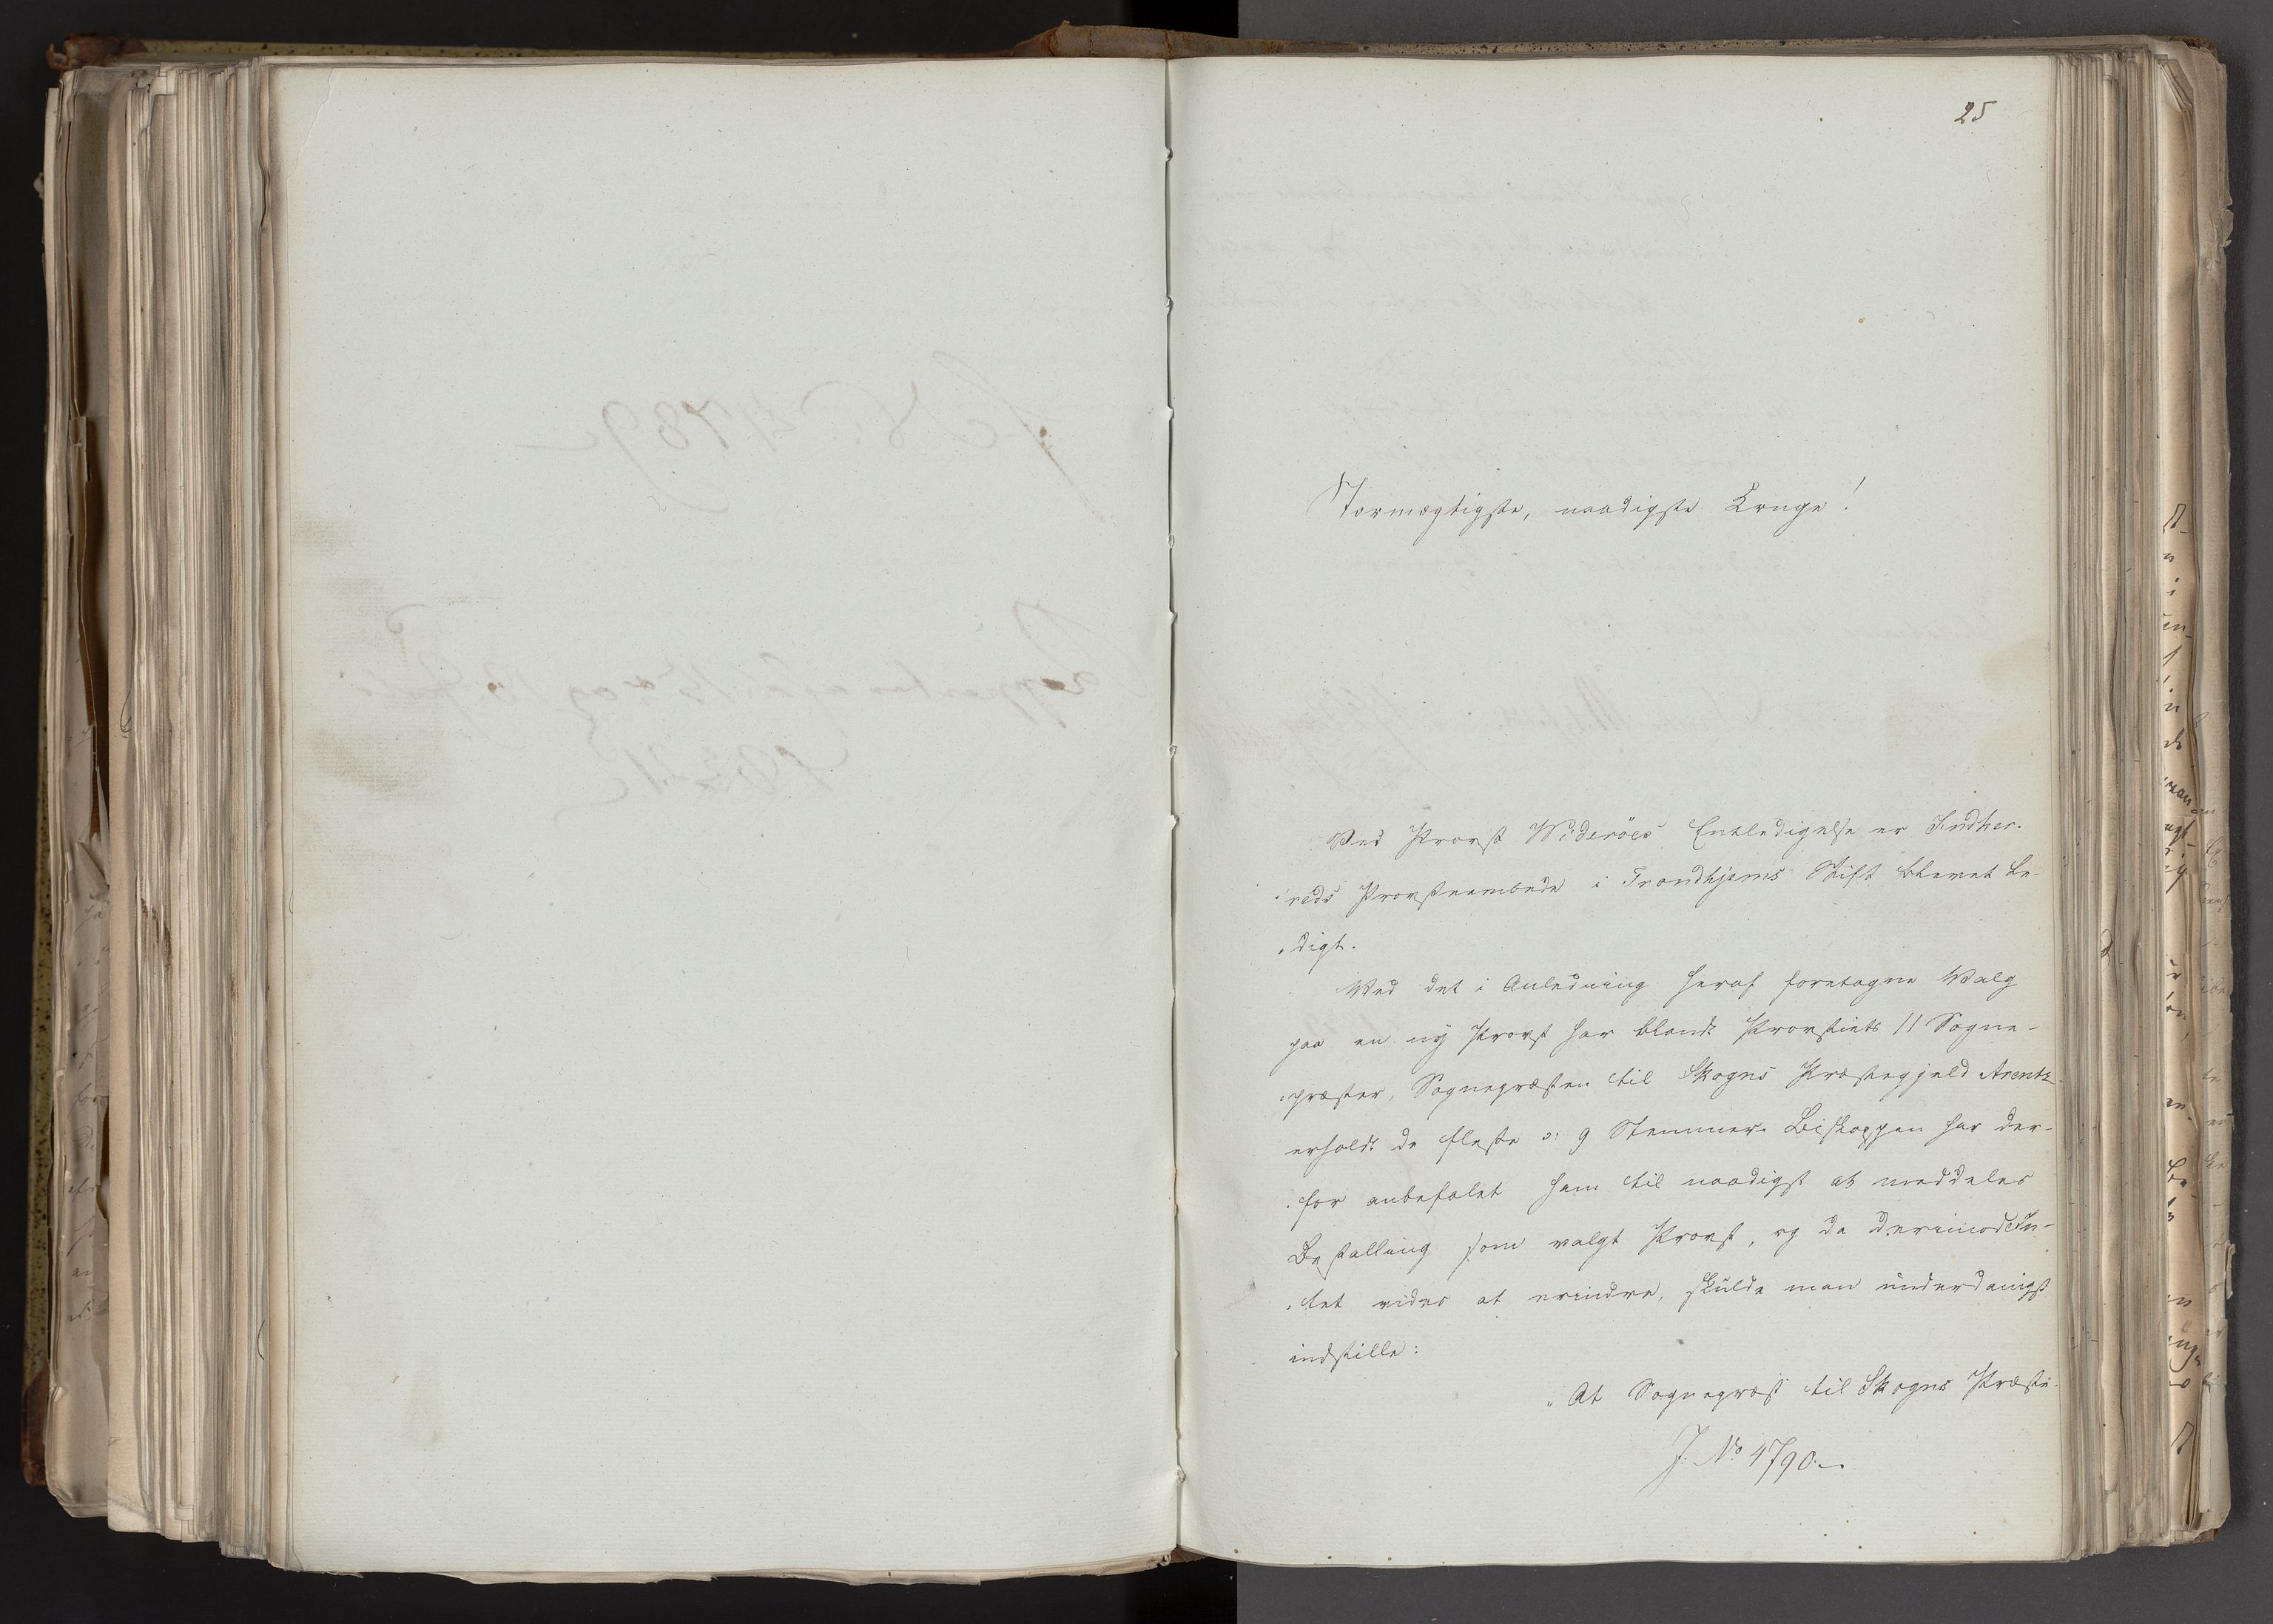 25
Stormægtigste, naadigste Konge!
Ved Provst Wideröes Entledigelse er Indher-
reds Provsteembede i Trondhjems Stift blevet le-
digt.
Ved det i Anledning heraf foretagne Valg
paa en ny Provst har blandt Provstiets 11 Sogne-
præster, Sognepræsten til Skogns Præstegjeld Arentz
erholdt de fleste ɔ: 9 Stemmer. Biskoppen har der-
for anbefalet ham til naadigst at meddeles
Bestalling som valgt Provst, og da derimod In-
tet vides at erindre, skulde man underdanigst
indstille:
"At Sognepræst til Skogns Præste-
J. No 4790.